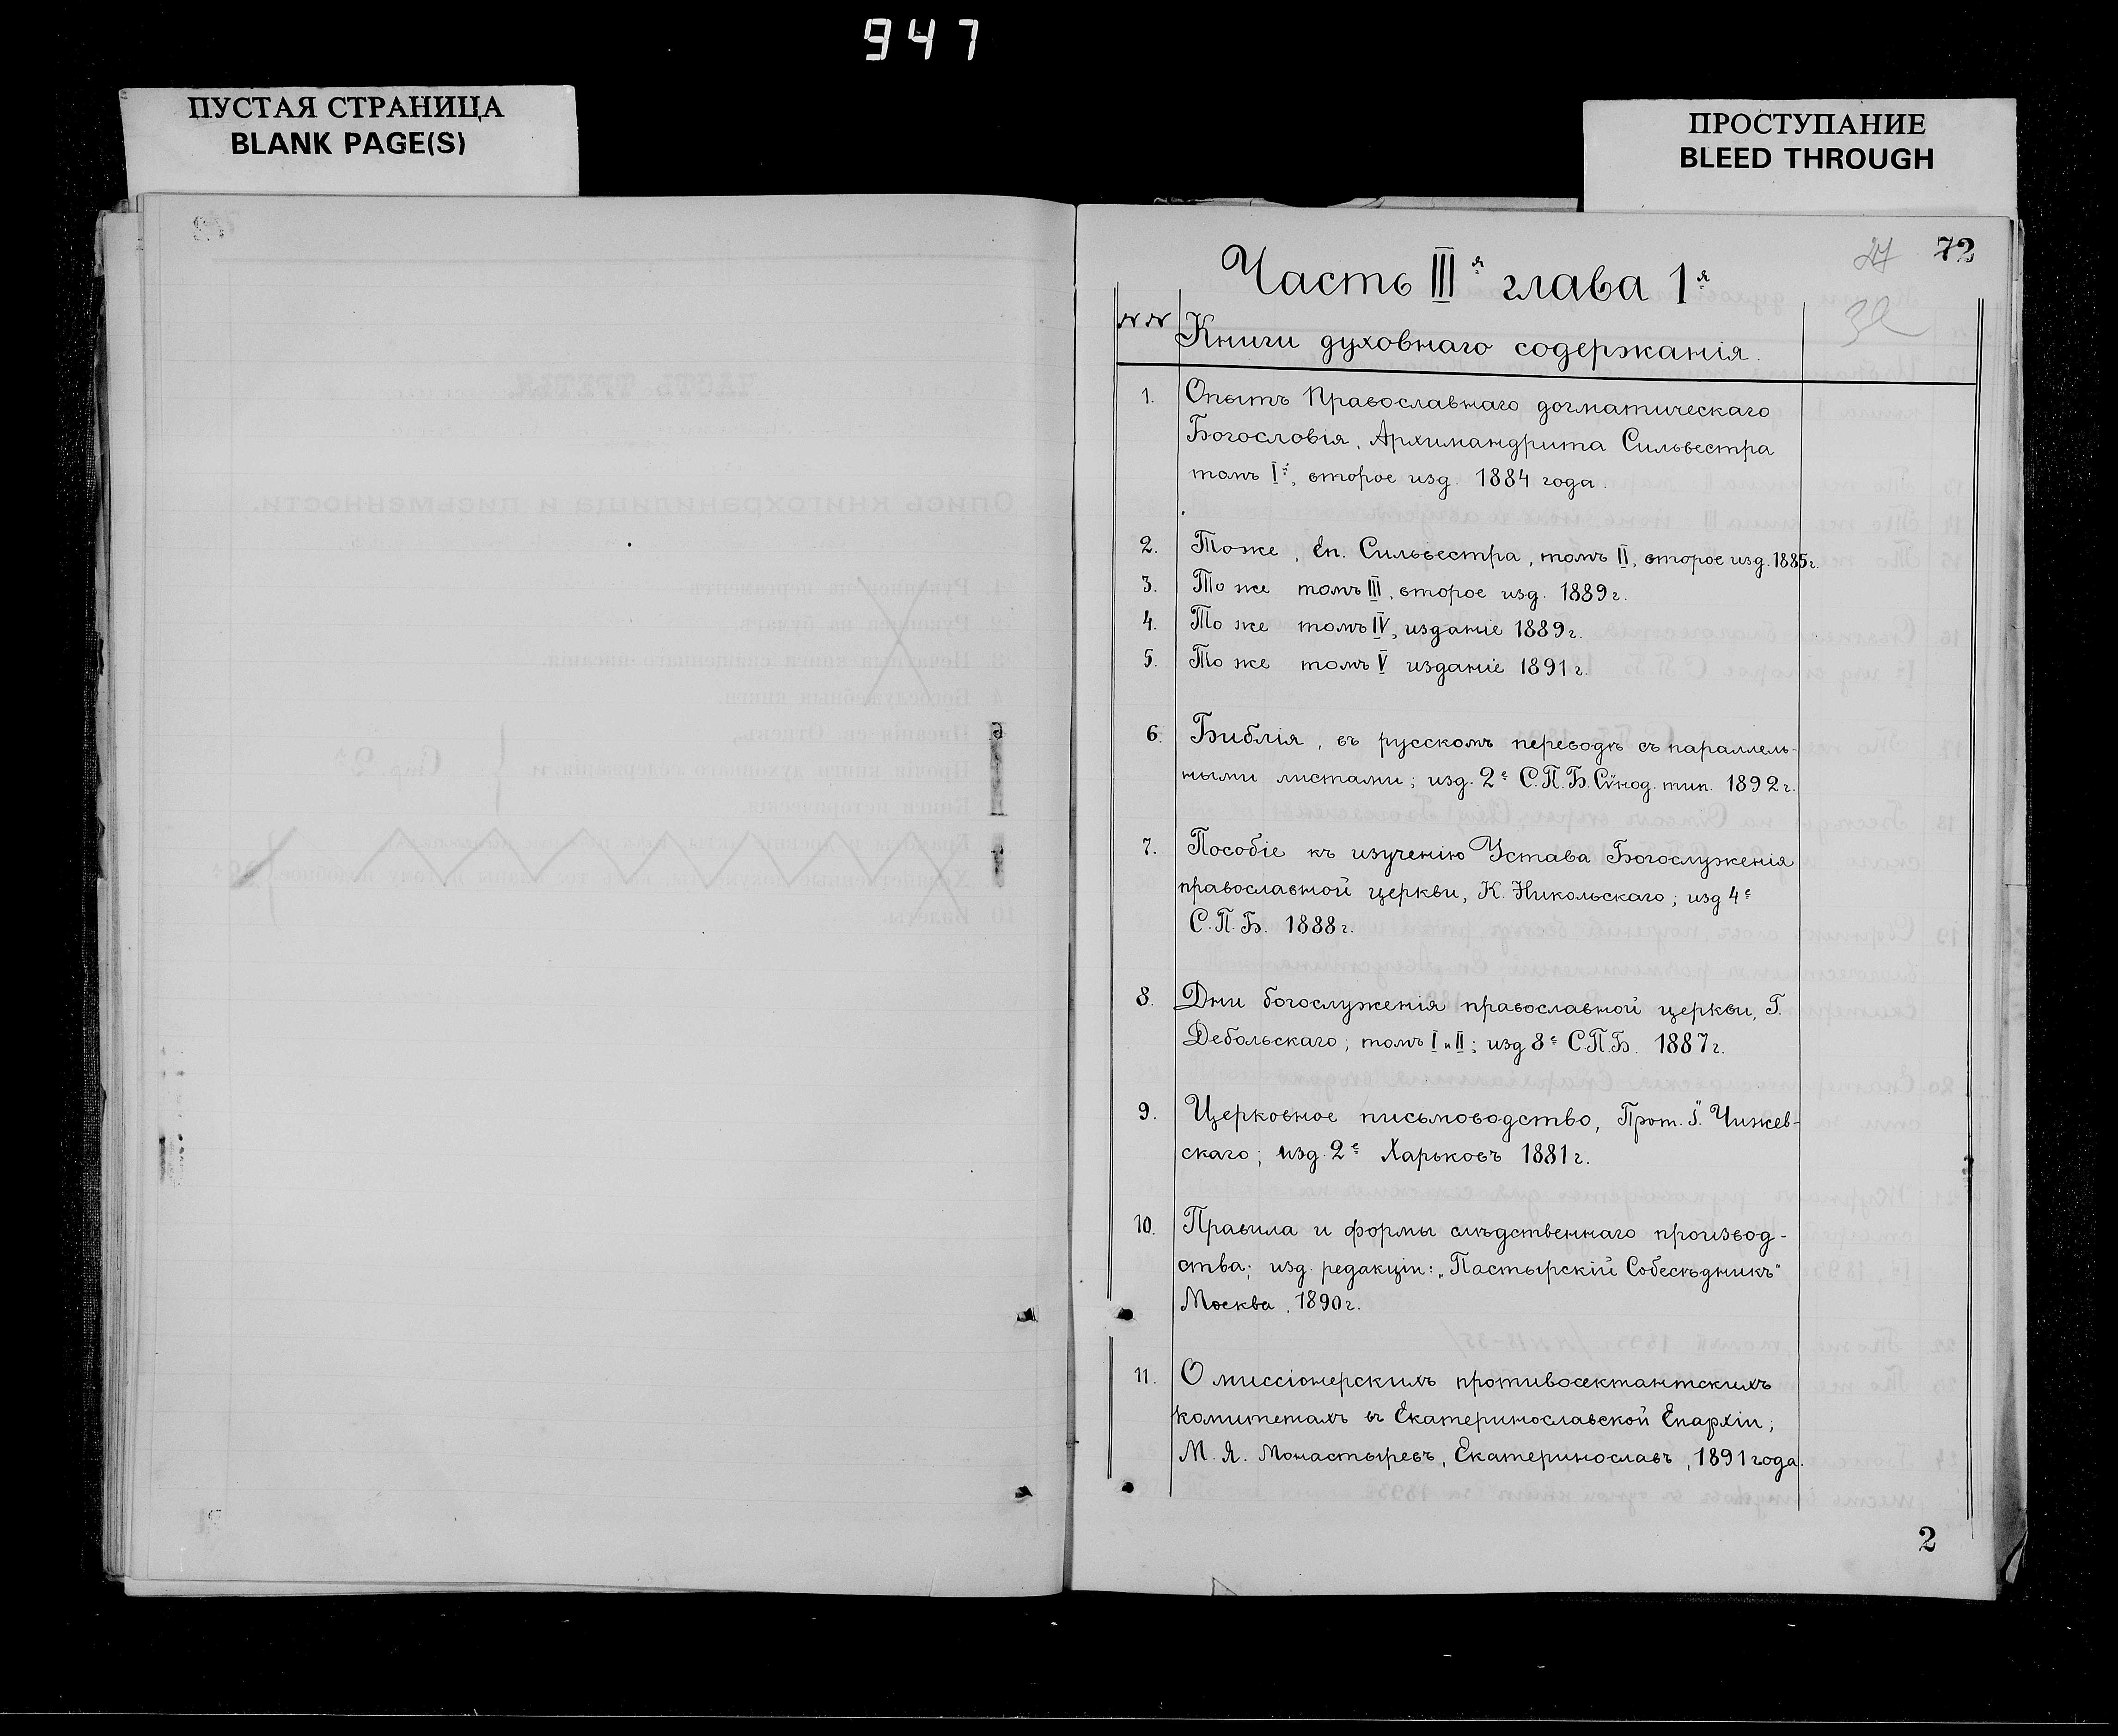 947
ПУСТАЯ СТРАНИЦА
BLANK PAGE(S)
ПРОСТУПАНИЕ
BLEED THROUGH
72
27
32
Часть III я глава 1 я
№№ Книги духовнаго содержанія.
1. Опытъ Православнаго догматическаго
Богословія, Архимандрита Сильвестра
томъ I й, второе изд. 1884 года.
2. Тоже, Еп. Сильвестра, томъ II, второе изд. 1885 г.
3. То же томъ III, второе изд. 1889 г.
4. То же томъ IV, изданіе 1889 г.
5. То же томъ V изданіе 1891 г.
6. Библія, въ русскомъ переводѣ съ параллель-
ными листами; изд. 2 е С.П.Б. Сѵнод. тип. 1892 г.
7. Пособіе къ изученію Устава Богослуженія
православной церкви, К. Никольскаго; изд 4 е
С.П.Б. 1888 г.
8. Дни богослуженія православной церкви, Г.
Дебольскаго; томъ I и II; изд 8 е С.П.Б. 1887 г.
9. Церковное письмоводство, Прот. І. Чижев-
скаго; изд. 2 е Харьковъ 1881 г.
10. Правила и формы слѣдственнаго производ-
ства; изд. редакціи: „Пастырскій Собесѣдникъ"
Москва, 1890 г.
11. О миссіонерскихъ противосектантскихъ
комитетахъ въ Екатеринославской Епархіи;
М. Я. Монастыревъ, Екатеринославъ, 1891 года.
2